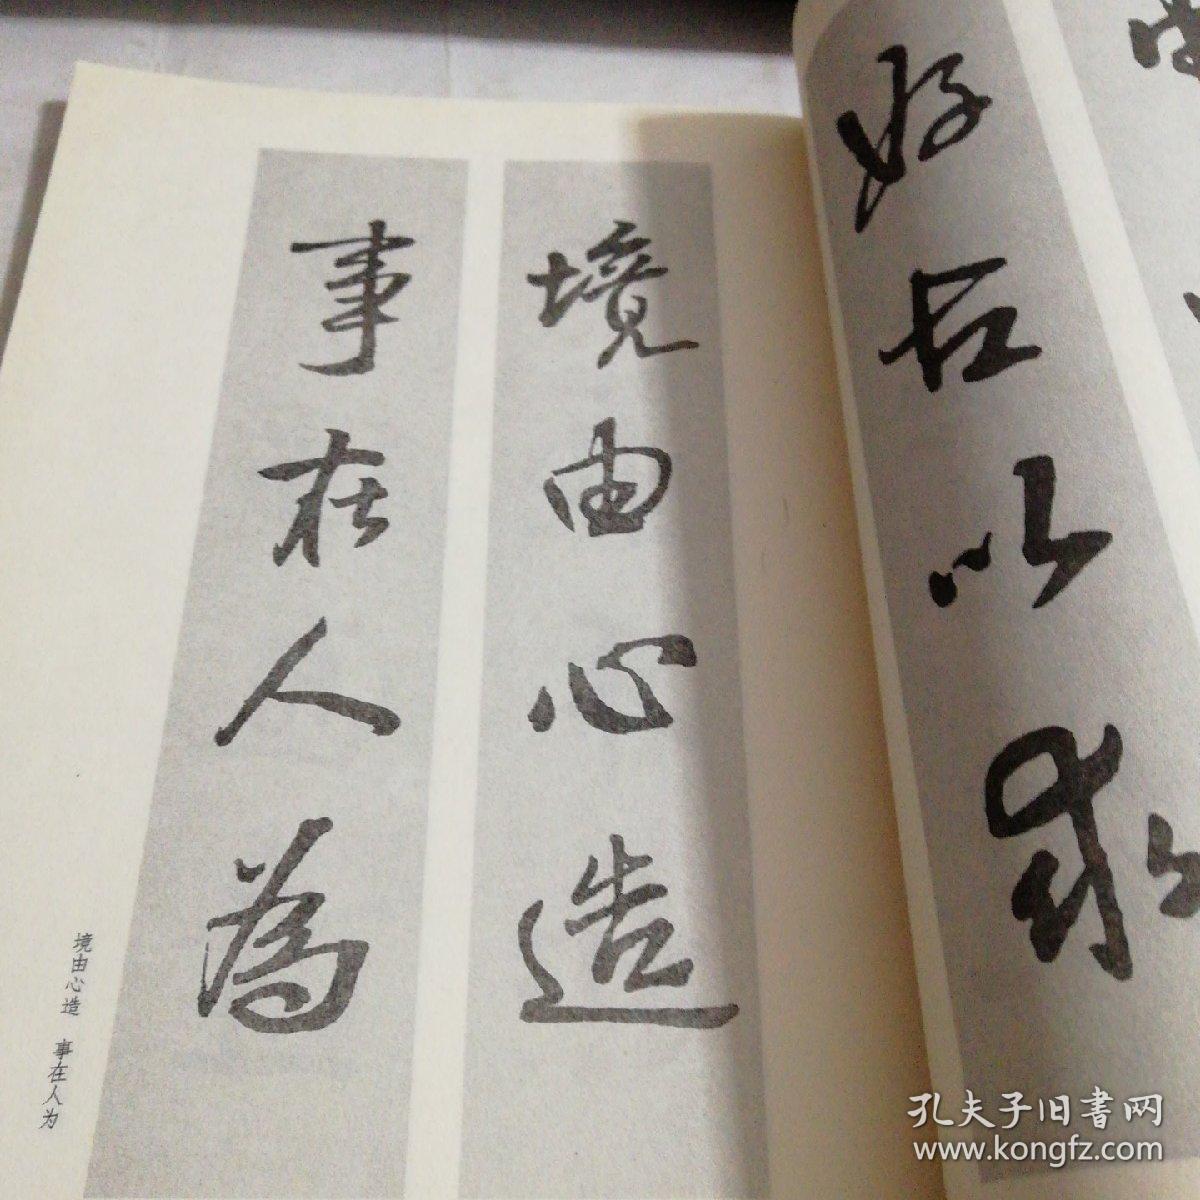 好古以求
境由心造
事在人為
境由心造 事在人为
孔夫子旧书网
www.kongfz.com